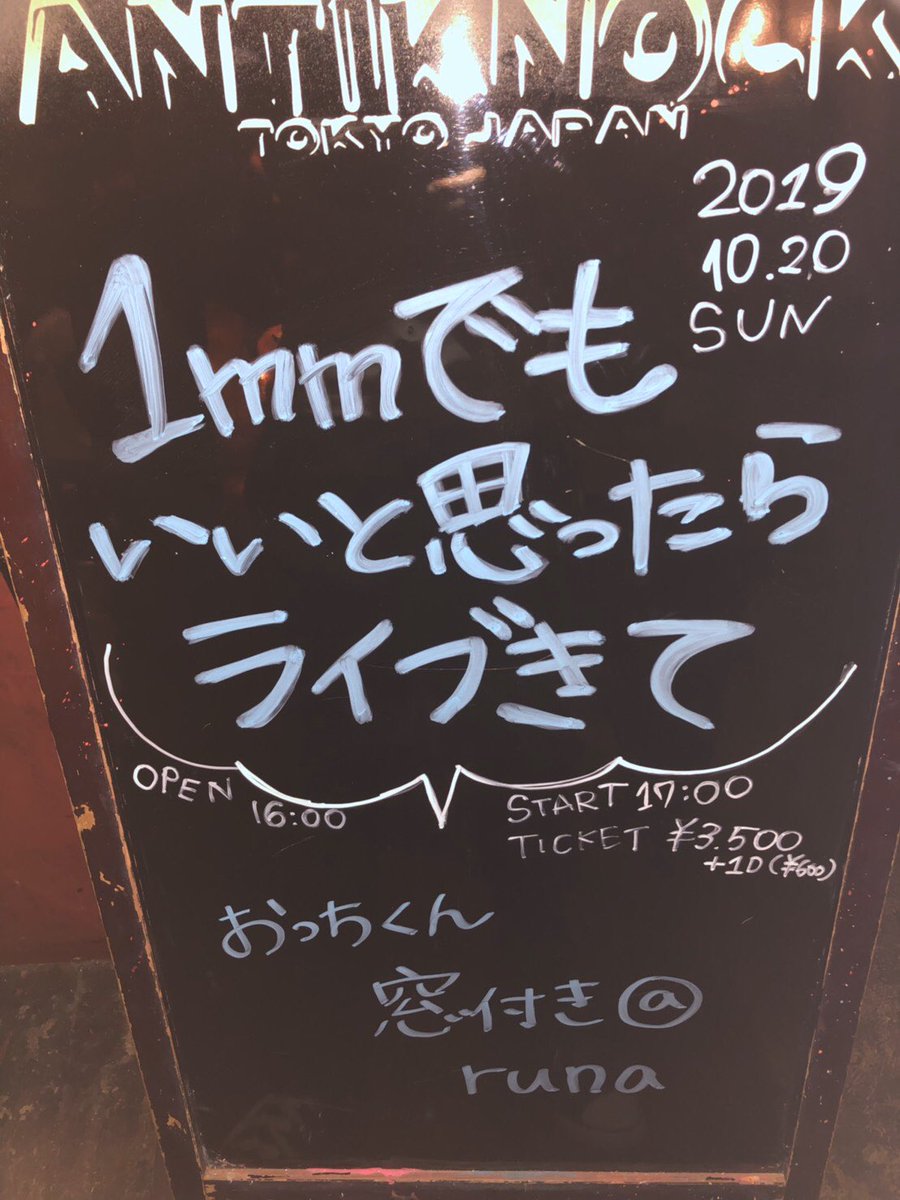 ANTIKNOCK
TOKYO JAPAN
2019
10.20
SUN
1mmでも
いいと思ったら
ライブきて
OPEN 16:00
START 17:00
TICKET ¥3.500
+1D(¥600)
おっちくん
窓付き@
runa